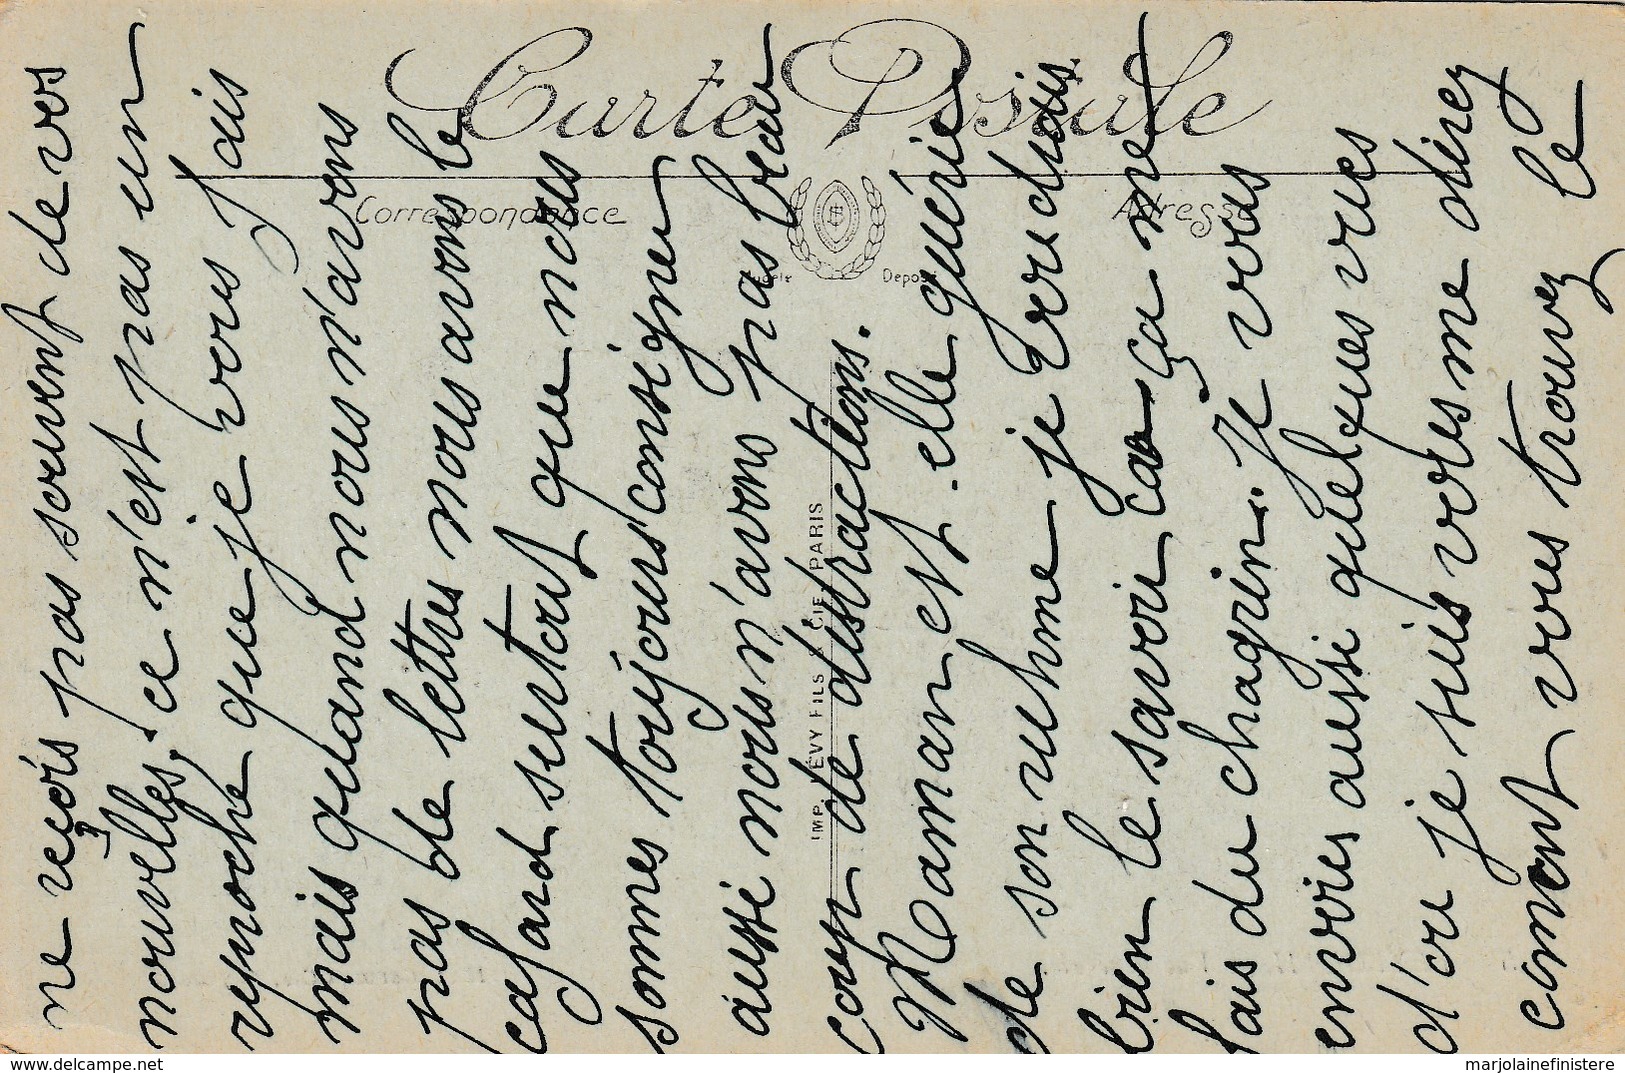 Carte Postale
Correspondance
Adresse
Modèle Déposé
IMP. LÉVY FILS & CIE PARIS
ne reçois pas souvent de vos
nouvelles, ce n'est pas un
reproche que je vous fais
mais quand nous n'avons
pas de lettres nous avons le
cafard surtout que nous
sommes toujours consigner
aussi nous n'avons pas beau
coup de distractions.
Maman est-elle guérie
de son ruhme je voudrais
bien le savoir car ça me
fais du chagrin. Je vous
envoies aussi quelques vues
d'ou je suis vous me direz
coment vous trouvez le
marjolainefinistere
www.delcampe.net